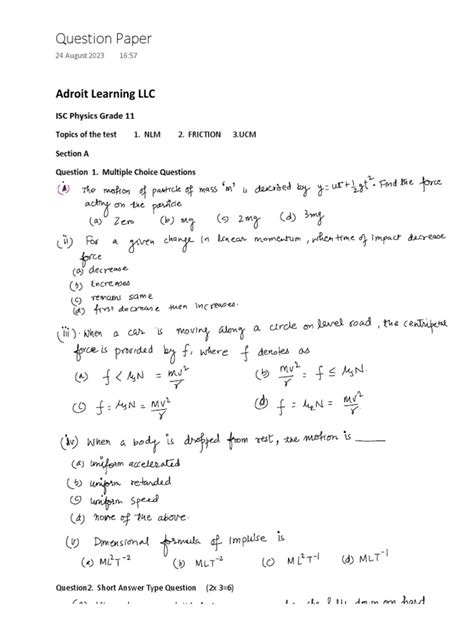 Question Paper
24 August 2023 16:57
Adroit Learning LLC
ISC Physics Grade 11
Topics of the test 1. NLM 2. FRICTION 3.UCM
Section A
Question 1. Multiple Choice Questions
(i) The motion of particle of mass 'm' is described by y = ut + 1/2 gt². Find the force
acting on the particle
(a) Zero (b) mg (c) 2mg (d) 3mg
(ii) For a given change in linear momentum, when time of impact decrease
force
(a) decrease
(b) encreases
(c) remains same
(d) first decrease then increases.
(iii). When a car is moving along a circle on level road, the centripetal
force is provided by f, where f denotes as
(a) f < μsN = mv²/r (b) mv²/r = f ≤ μsN
(c) f = μsN = mv²/r (d) f = μkN = mv²/r
(iv) When a body is dropped from rest, the motion is ____
(a) uniform accelerated
(b) uniform retarded
(c) uniform speed
(d) none of the above.
(v) Dimensional formula of Impulse is
(a) ML²T⁻² (b) MLT⁻² (c) ML²T⁻¹ (d) MLT⁻¹
Question2. Short Answer Type Question (2x 3=6)